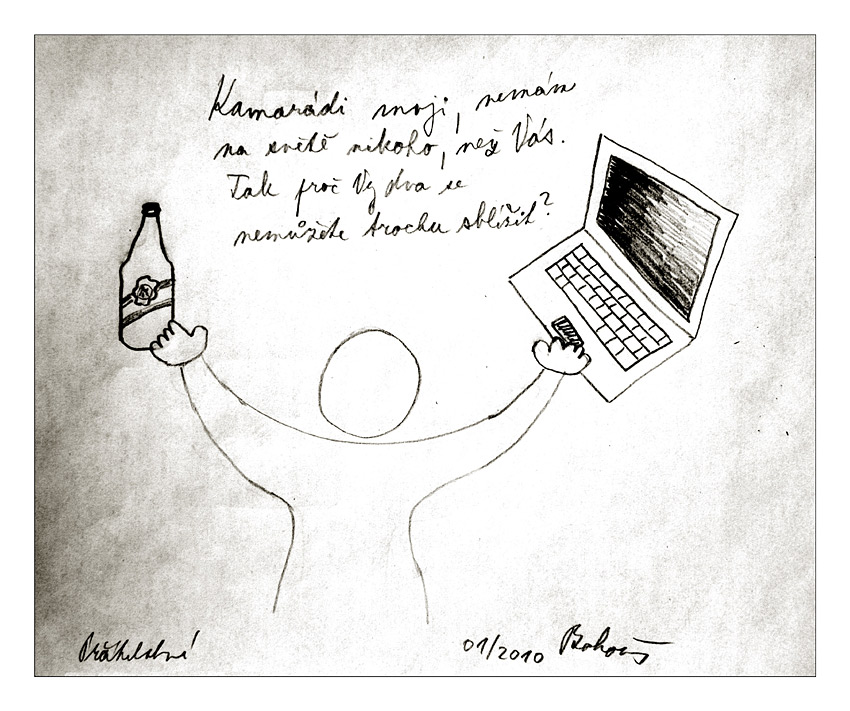 Kamarádi moji, nemám
na světě nikoho, než Vás.
Tak proč Vy dva se
nemůžete trochu sblížit?
Přátelství
01/2010 Bohouš